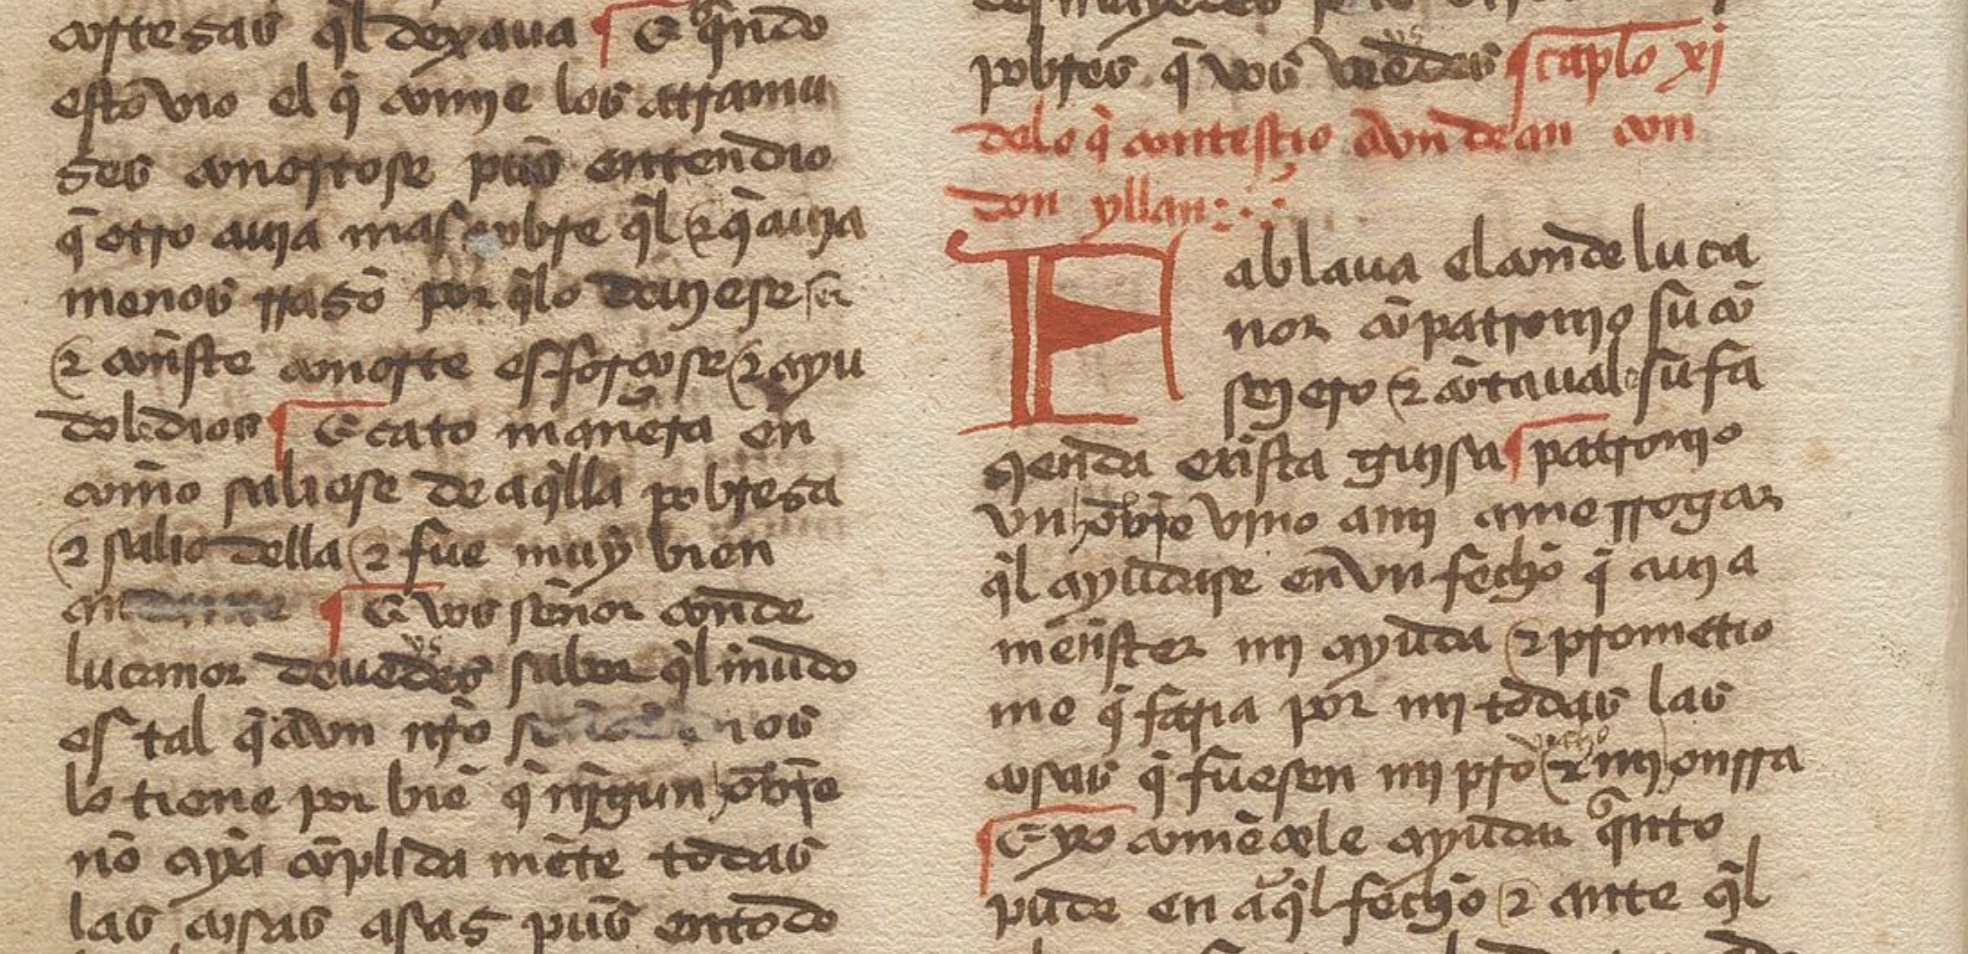 cortezas q̃l dexaua ¶ E q̃ndo
esto vio el q̃ comie los atramu
zes conortose pues entendio
q̃ otro auja mas pobre q̃l ⁊ q̃ auja
menos rrazõ por q̃lo deujese ser
⁊ con̄ste conorte esforçose ⁊ ayu
dol dios ¶ E cato man̄era en
com̄o saliese de aq̃lla pobreza
⁊ salio della ⁊ fue muy bien
¶ E vos señor con̄de
lucanor deuedes saber q̃l mũdo
es tal q̃ avn nr̃o señor dios
lo tiene por biẽ q̃ nj̃gun om̄e
nõ aya cõplida mẽte todas
las cosas asas pues en todo
pobres q̃ vos vedes ¶ caplo xj
delo q̃ contesçio avn dean con
don yllan
Fablaua el con̄de luca
nor cõ patronjo su cõ
sejero ⁊ cõtaual su fa
zienda en esta gujsa ¶ patronjo
vn om̄e vino amj ame rrogar
q̃l ayudase en vn fecho q̃ auja
menester mj ayuda ⁊ prometio
me q̃ faria por mj todas las
cosas q̃ fuesen mj pro ⁊ mj onrra
¶ E yo comẽçele ayudar q̃nto
pude en aq̃l fecho ⁊ ante q̃l